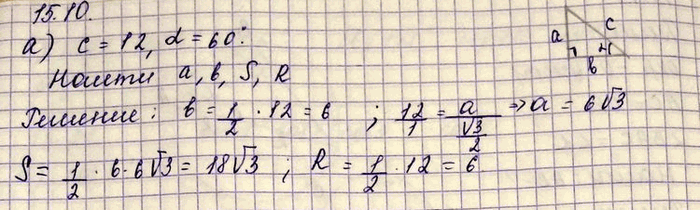 15.10.
а) c = 12, α = 60°.
Найти a, b, S, R
Решение: b = 1/2 · 12 = 6 ; 12/1 = a/(√3/2) => a = 6√3
S = 1/2 · 6 · 6√3 = 18√3 ; R = 1/2 · 12 = 6
a c b α